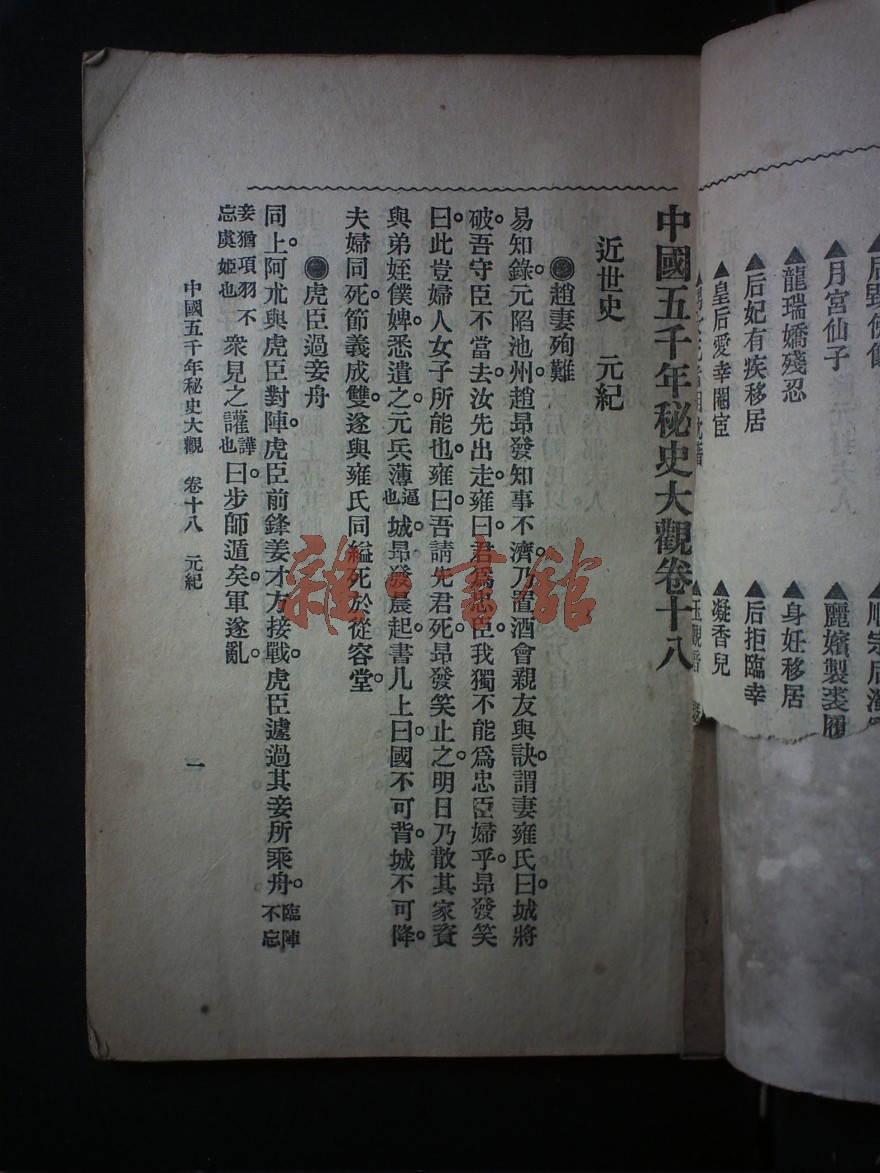 月宮仙子
龍瑞嬌殘忍
后妃有疾移居
皇后愛幸閹宦
麗嬪製裘履
身妊移居
后拒臨幸
凝香兒
中國五千年秘史大觀卷十八
近世史 元紀
趙妻殉難
易知錄。元陷池州。趙昂發知事不濟。乃置酒會親友與訣。謂妻雍氏曰。城將
破。吾守臣不當去。汝先出走。雍曰。君爲忠臣。我獨不能爲忠臣婦乎。昂發笑
曰。此豈婦人女子所能也。雍曰。吾請先君死。昂發笑止之。明日乃散其家資
與弟姪僕婢。悉遣之。元兵薄逼也城。昂發晨起。書几上曰。國不可背。城不可降。
夫婦同死。節義成雙。遂與雍氏同縊死於從容堂。
虎臣過妾舟
同上。阿朮與虎臣對陣。虎臣前鋒姜才方接戰。虎臣遽過其妾所乘舟。臨陣不忘
妾猶項羽不忘虞姬也衆見之讙譁也曰。步師遁矣。軍遂亂。
中國五千年秘史大觀 卷十八 元紀 一
雜·書館